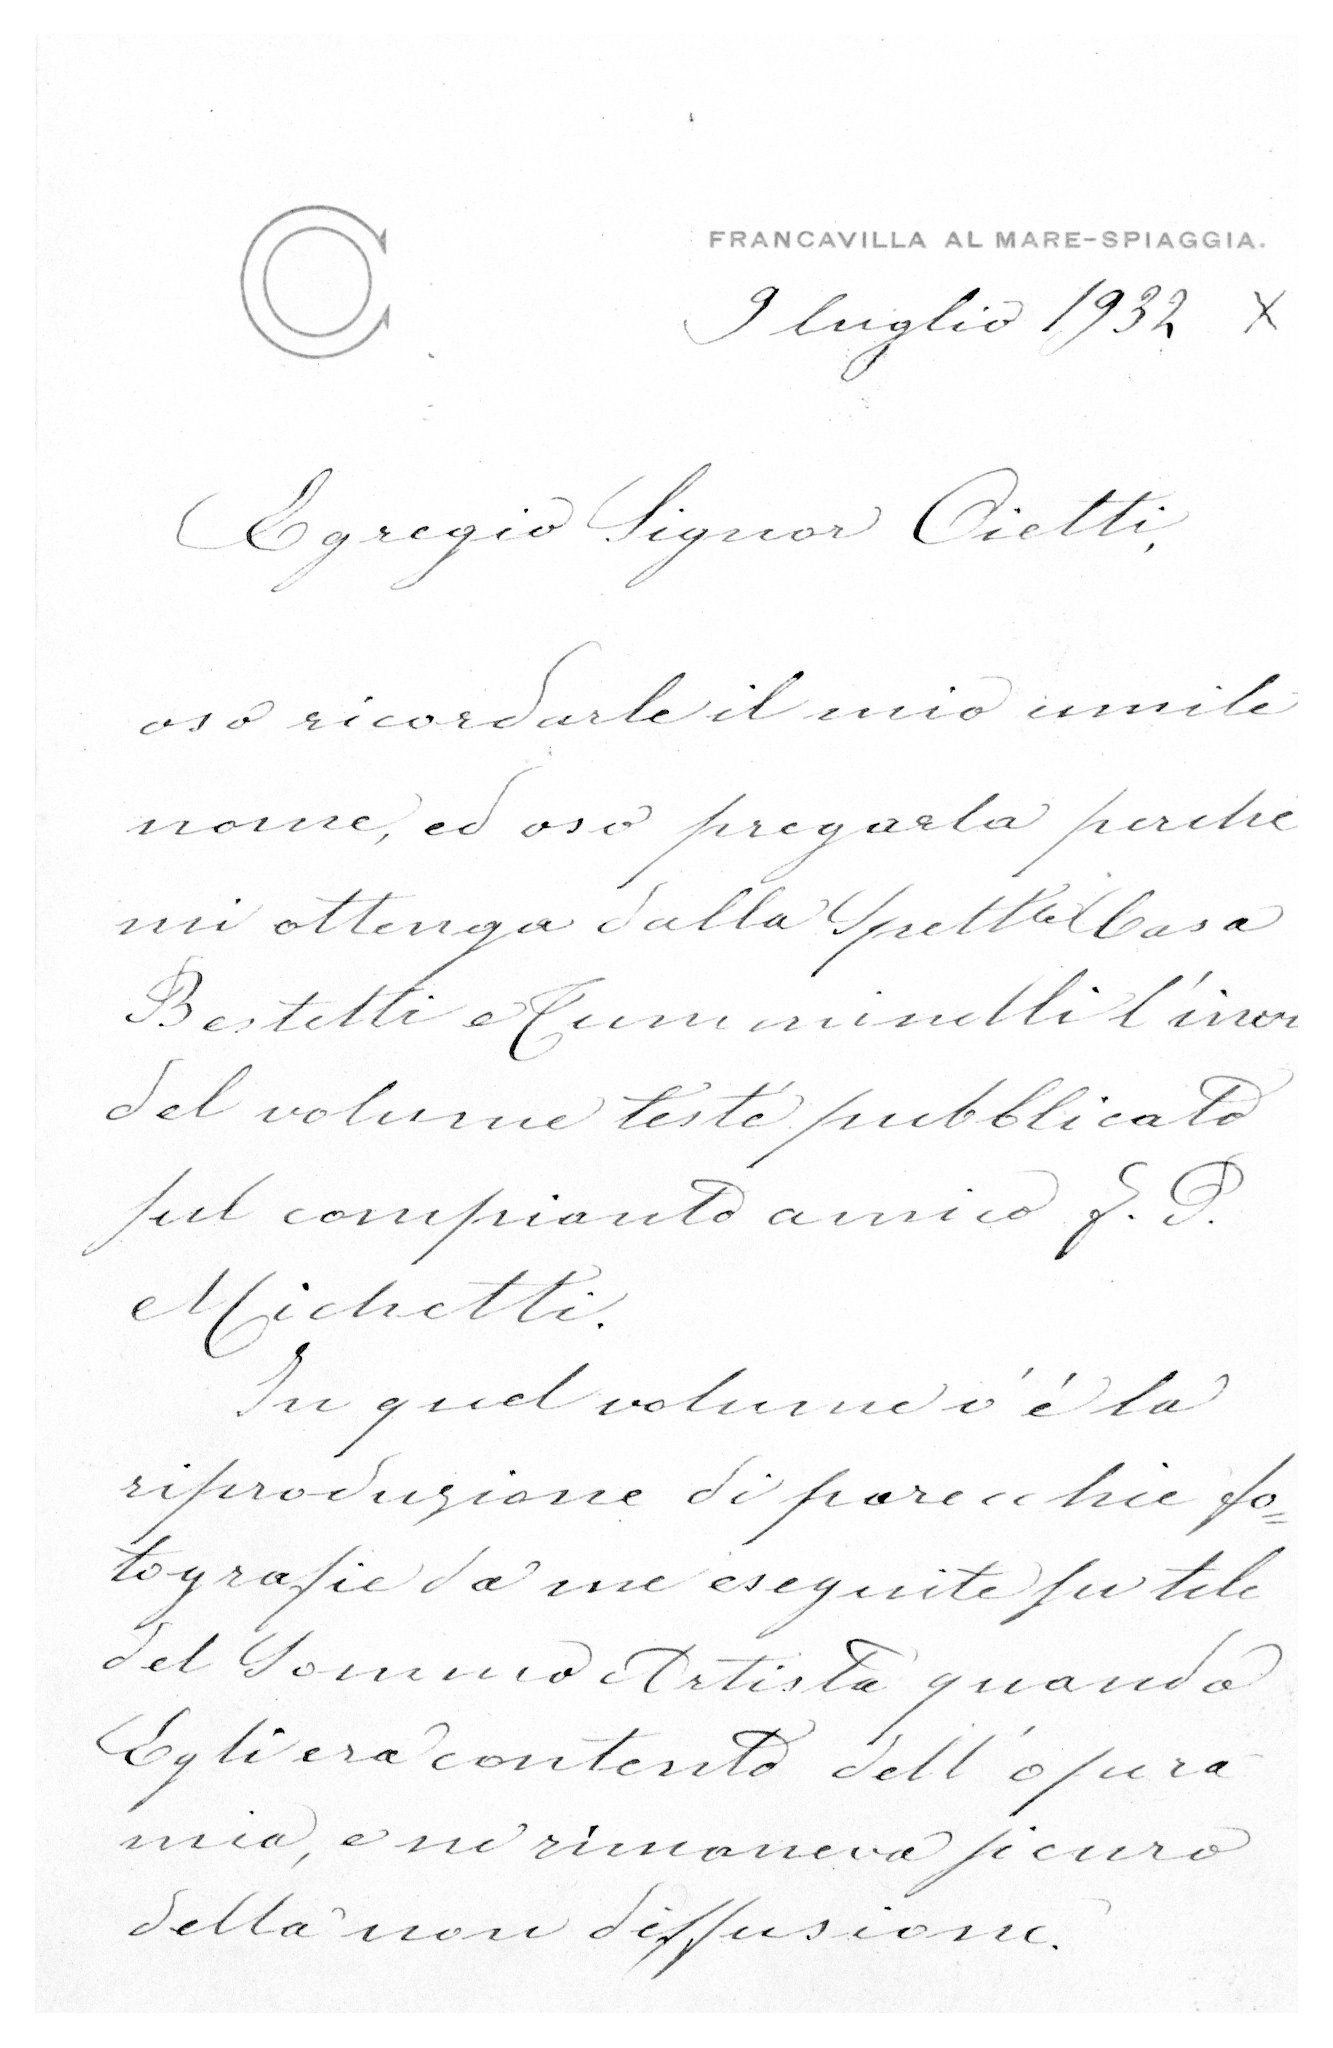 C
FRANCAVILLA AL MARE-SPIAGGIA.
9 luglio 1932 X
Egregio Signor Cietti,
oso ricordarle il mio umile
nome, ed oso pregarla perchè
mi ottenga dalla Spett.le Casa
Bestetti e Tumminelli l'invio
del volume testè pubblicato
sul compianto amico F. P.
Michetti.
In quel volume v'è la
riproduzione di parecchie fo=
tografie da me eseguite su tele
del Sommo Artista quando
Egli era contento dell'opera
mia, e ne rimaneva sicuro
della non diffusione.